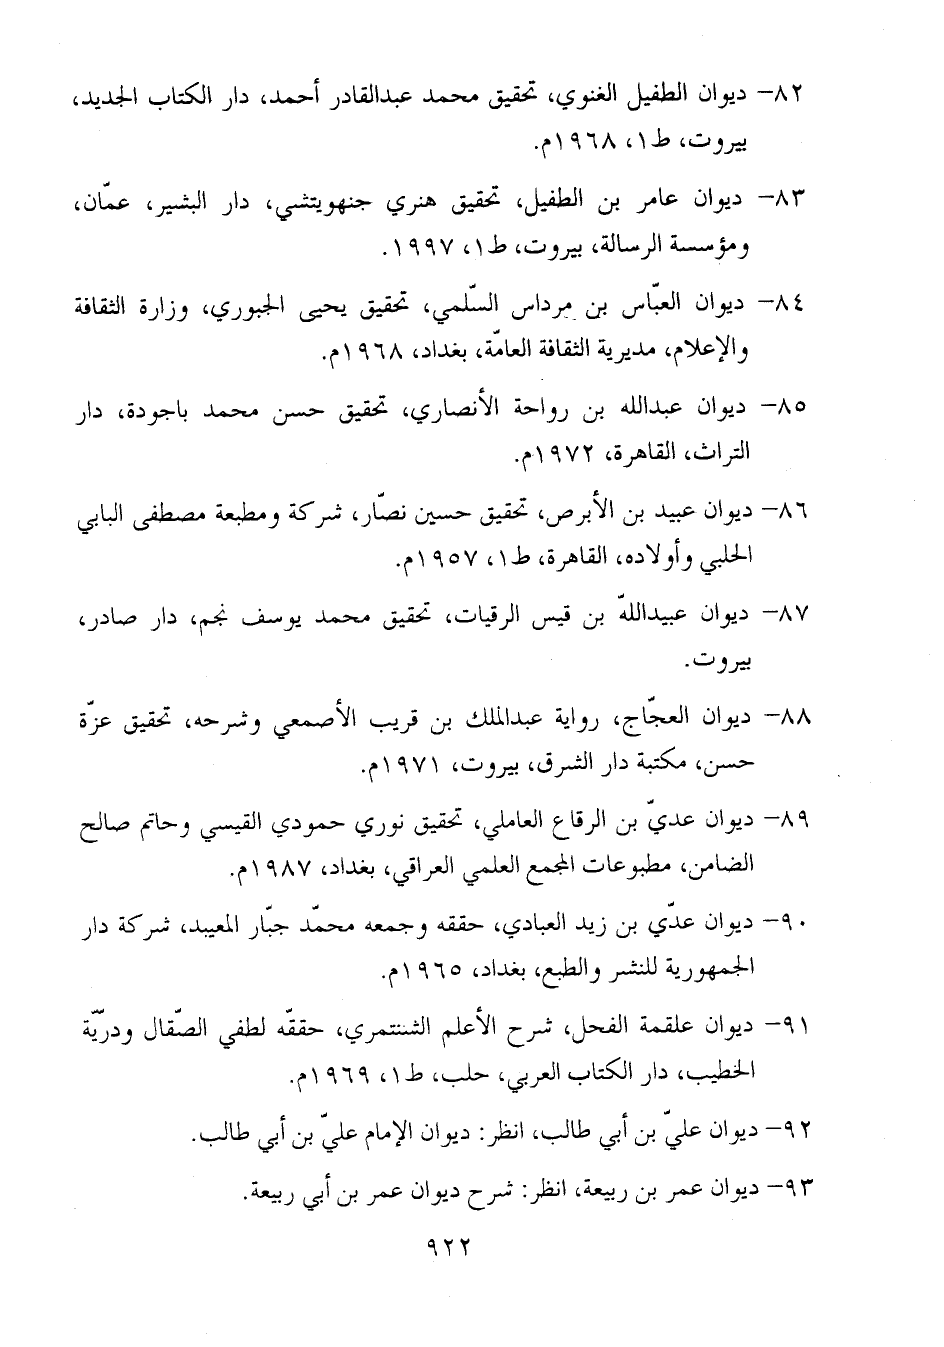 ٨٢– ديوان الطفيل الغنوي، تحقيق محمد عبدالقادر أحمد، دار الكتاب الجديد،
بيروت، ط١، ١٩٦٨م.
٨٣– ديوان عامر بن الطفيل، تحقيق هنري جنهويتشي، دار البشير، عمّان،
ومؤسسة الرسالة، بيروت، ط١، ١٩٩٧.
٨٤– ديوان العبّاس بن مرداس السّلمي، تحقيق يحيى الجبوري، وزارة الثقافة
والإعلام، مديرية الثقافة العامّة، بغداد، ١٩٦٨م.
٨٥– ديوان عبدالله بن رواحة الأنصاري، تحقيق حسن محمد باجودة، دار
التراث، القاهرة، ١٩٧٢م.
٨٦– ديوان عبيد بن الأبرص، تحقيق حسين نصّار، شركة ومطبعة مصطفى البابي
الحلبي وأولاده، القاهرة، ط١، ١٩٥٧م.
٨٧– ديوان عبيداللهّ بن قيس الرقيات، تحقيق محمد يوسف نجم، دار صادر،
بيروت.
٨٨– ديوان العجّاج، رواية عبدالملك بن قريب الأصمعي وشرحه، تحقيق عزّة
حسن، مكتبة دار الشرق، بيروت، ١٩٧١م.
٨٩– ديوان عديّ بن الرقاع العاملي، تحقيق نوري حمودي القيسي وحاتم صالح
الضامن، مطبوعات المجمع العلمي العراقي، بغداد، ١٩٨٧م.
٩٠– ديوان عدّي بن زيد العبادي، حققه وجمعه محمّد جبّار المعيبد، شركة دار
الجمهورية للنشر والطبع، بغداد، ١٩٦٥م.
٩١– ديوان علقمة الفحل، شرح الأعلم الشنتمري، حققّه لطفي الصّقال ودريّة
الخطيب، دار الكتاب العربي، حلب، ط١، ١٩٦٩م.
٩٢– ديوان عليّ بن أبي طالب، انظر: ديوان الإمام عليّ بن أبي طالب.
٩٣– ديوان عمر بن ربيعة، انظر: شرح ديوان عمر بن أبي ربيعة.
٩٢٢